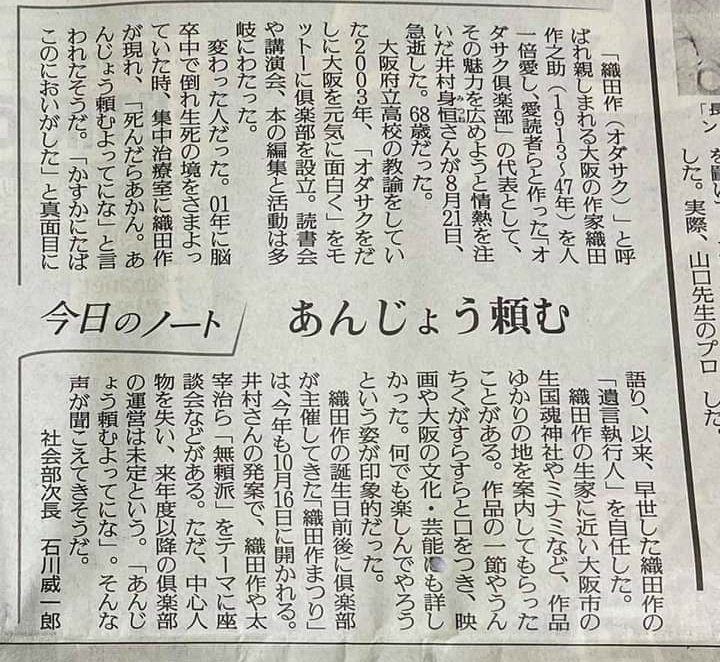 「長
ン
した。
した。実際、山口先生のプロ
あんじょう頼む
今日のノート
「織田作(オダサク)」と呼
ばれ親しまれる大阪の作家織田
作之助(1913~47年)を人
一倍愛し、愛読者らと作った「オ
ダサク倶楽部」の代表として、
その魅力を広めようと情熱を注
いだ井村身恒さんが8月21日、
急逝した。68歳だった。
大阪府立高校の教諭をしてい
た2003年、「オダサクをだ
しに大阪を元気に面白く」をモ
ットーに倶楽部を設立。読書会
や講演会、本の編集と活動は多
岐にわたった。
変わった人だった。01年に脳
卒中で倒れ生死の境をさまよっ
ていた時、集中治療室に織田作
が現れ、「死んだらあかん。あ
んじょう頼むよってにな」と言
われたそうだ。「かすかにたば
このにおいがした」と真面目に
語り、以来、早世した織田作の
「遺言執行人」を自任した。
織田作の生家に近い大阪市の
生国魂神社やミナミなど、作品
ゆかりの地を案内してもらった
ことがある。作品の一節やうん
ちくがすらすらと口をつき、映
画や大阪の文化・芸能にも詳し
かった。何でも楽しんでやろう
という姿が印象的だった。
織田作の誕生日前後に倶楽部
が主催してきた「織田作まつり」
は、今年も10月16日に開かれる。
井村さんの発案で、織田作や太
宰治ら「無頼派」をテーマに座
談会などがある。ただ、中心人
物を失い、来年度以降の倶楽部
の運営は未定という。「あんじ
ょう頼むよってにな」。そんな
声が聞こえてきそうだ。
社会部次長 石川威一郎